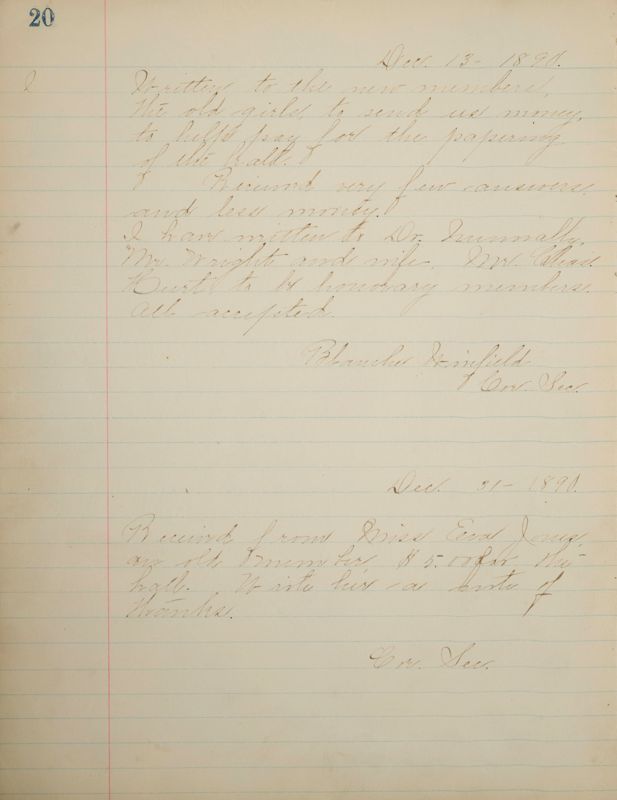 20
Dec. 13- 1890.
Written to the new members,
the old girls, to send us money,
to help pay for the papering
of the hall.
Received very few answers
and less money.
I have written to Dr. Nunnally,
Mr. Wright and wife, Mr. Chas.
Hurt to be honorary members.
All accepted.
Blanche Winfield
Cor. Sec.
Dec. 31- 1890.
Received from Miss Eva Jones
an old member $5.00 for the
hall. Wrote her a note of
thanks.
Cor. Sec.